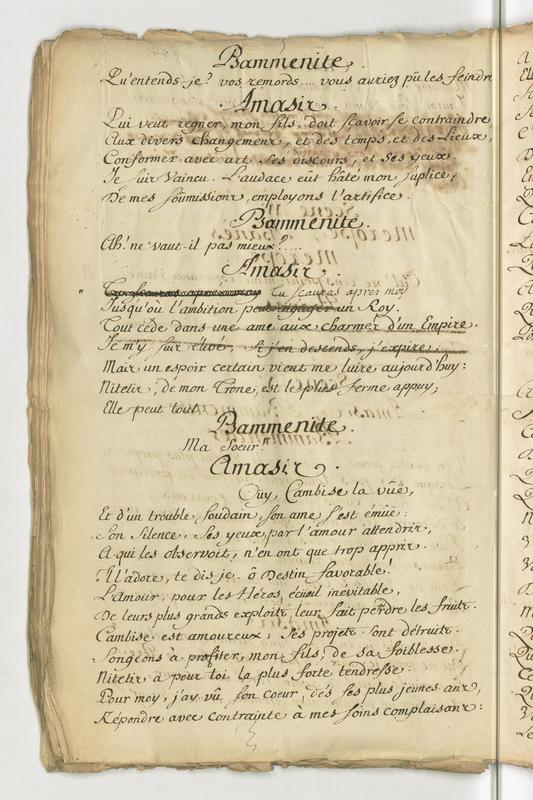 Psammenite.
Qu'entends-je? vos remords.... vous auriez pu les feindre
Amasis.
Qui veut regner, mon fils, doit sçavoir se contraindre
Aux divers changemens, et des temps, et des Lieux,
Conformer avec art ses discours, et ses yeux.
Je suis Vaincu. L'audace eût hâté mon suplice;
De mes soûmissions, employons l'artifice.
Psammenite.
Ah! ne vaut-il pas mieux?....
Amasis.
" Tu sçauras après moy
Jusqu'ou l'ambition peut engager un Roy.
Tout cède dans une ame aux charmes d'un Empire.
Je m'y suis élevé; si j'en descends, j'expire.
Mais un espoir certain vient me luire aujourd'huy:
Nitetis, de mon Trone, est le plus ferme appuy;
Elle peut tout.
Psammenite.
Ma Soeur!
Amasis.
Oüy, Cambise la vüë,
Et d'un trouble soudain, son ame s'est émüë:
Son Silence, Ses yeux, par l'amour attendris,
A qui les observoit, n'en ont que trop appris.
Il l'adore, te dis je. ô Destin favorable!
L'Amour, pour les Héros, écueil inévitable,
De leurs plus grands exploits leur fait perdre les fruits.
Cambise est amoureux; Ses projets sont détruits.
Songeons à profiter, mon fils, de sa foiblesse.
Nitetis a pour toi la plus forte tendresse
Pour moy, j'ay vû son coeur, dès ses plus jeunes ans,
Répondre avec contrainte à mes soins complaisans: